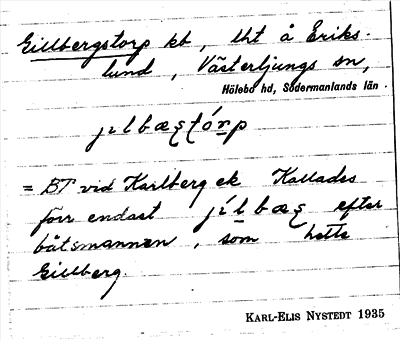 Gillbergstorp kb, lht å Eriks-
lund, Västerljungs sn,
Hölebo hd, Södermanlands län.
= BT vid Karlberg ek. Kallades
förr endast efter
båtsmannen, som hette
Gillberg.
KARL-ELIS NYSTEDT 1935